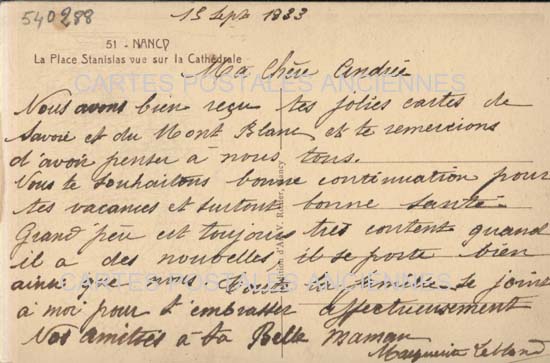 540288
15 Sept 1933
51 - NANCY
La Place Stanislas vue sur la Cathédrale
CARTES POSTALES ANCIENNES
Ma Chère Andrée
Nous avons bien reçu tes jolies cartes de
Savoie et du Mont Blanc et te remercions
d'avoir penser à nous tous.
Nous te souhaitons bonne continuation pour
tes vacances et surtout bonne santé.
Grand père est toujours très content quand
il a des nouvelles, il se porte bien
ainsi que nous. Toute la famille se joint
à moi pour t'embrasser affectueusement
Nos amitiés à ta Belle Maman
Marguerite Leblanc
CARTES POSTALES ANCIENNES
Nancy